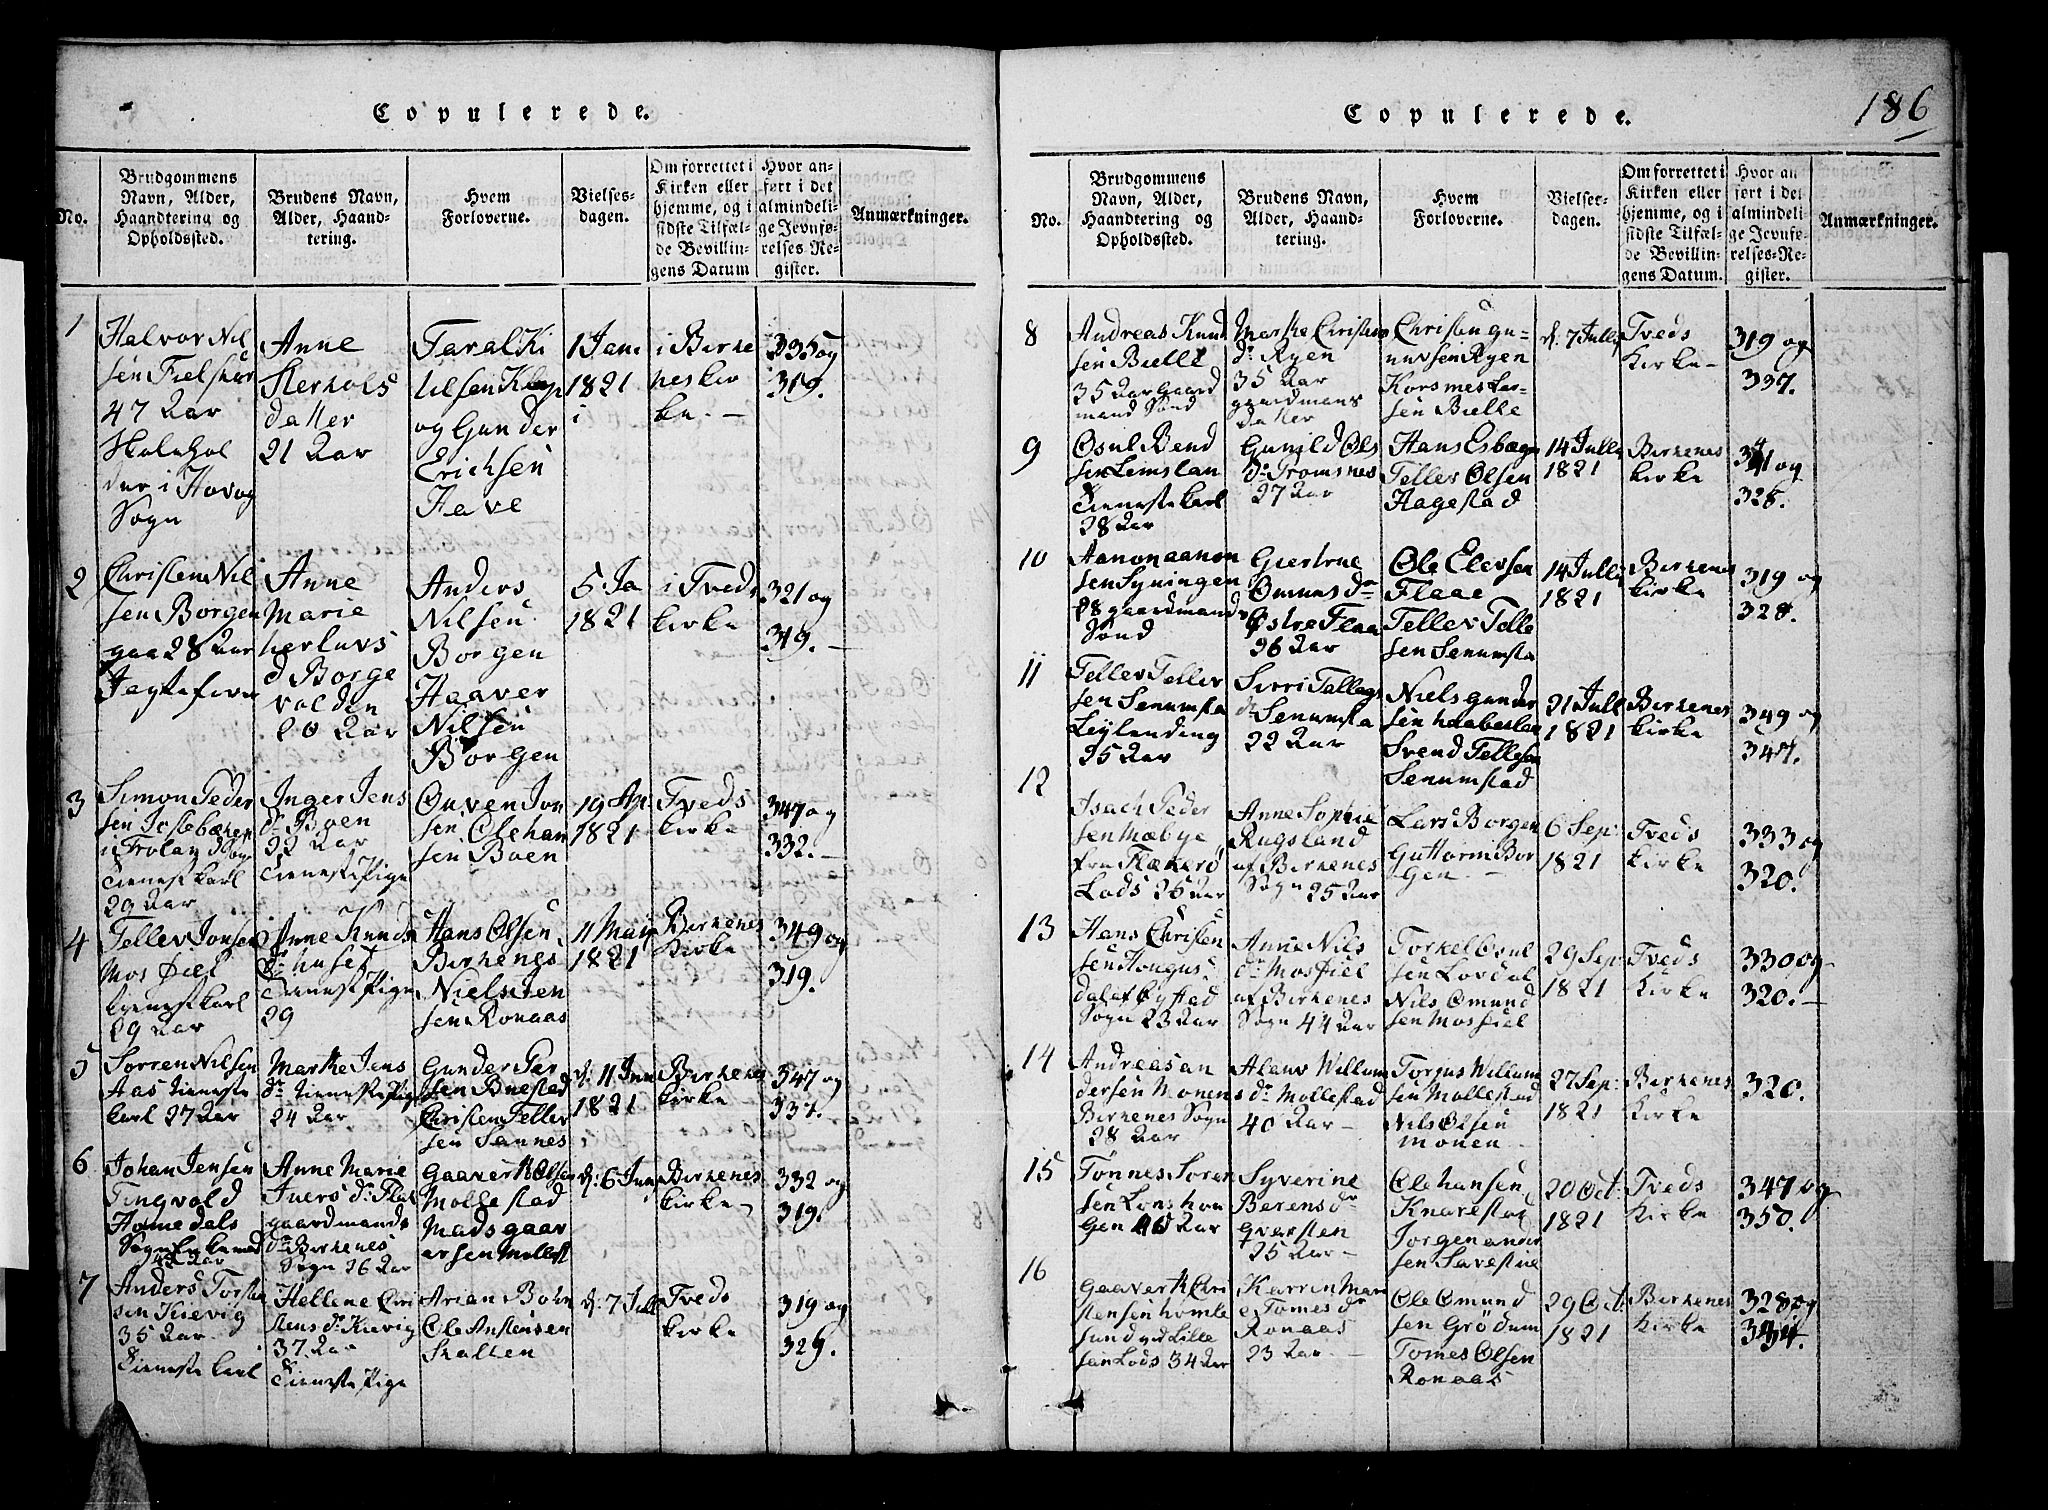 Copulerede.
No.
Brudgommens
Navn, Alder,
Haandtering og
Opholdssted.
Brudens Navn,
Alder, Haand-
tering.
Hvem
Forloverne.
Vielses-
dagen.
Om forrettet i
Kirken eller
hjemme, og i
sidste Tilfæl-
de Bevillin-
gens Datum
Hvor an-
ført i det
almindeli-
ge Jevnfø-
relses-Re-
gister.
Anmærkninger.
1
Halvor Nil
sen
47 Aar
i Hovog
Sogn
Anne
datter
21 Aar
Taral Ki
lilsen
og Gunder
Erichsen
Have
1 Jan
1821
i Birke
nes kir
ke. —
335 og
319.
2
Christen Nil
sen Borgen
gaa 28 Aar
Anne
Marie
herluvs
d Borge
volden
20 Aar
Anders
Nilsen
Borgen
Haaver
Nilsen
Borgen
5 Ja
1821
i Tveds
kirke
321 og
319. —
3
Simon Peder
sen
i Froland Sogn
Tienestkarl
29 Aar
Inger Jens
dr Boen
22 Aar
Tienestpige
Ouven Jon
sen Ole han
sen Boen
19 Ap:
1821
Tveds
kirke
347 og
332. —
4
Tellev Jonsen
Mosfiel
tienestkarl
29 Aar
Anne Knuds
dr huset
Tienestpige
29
Hans Olsen
Birkenes
Niels Jen
sen Ronaas
11 Maij
1821
Birkenes
Kirke
349 og
319.
5
Sørren Nilsen
Aas tieneste
karl 27 Aar
Marthe Jens
dr tienestepige
24 Aar
Gunder Per
sen
Christen Tellef
sen Sannes
d: 11 Jun
1821
Birkenes
kirke
347 og
337.
6
Johan Jensen
Tingvold
Homedals
Sogn Enkemand
42 Aar
Anne Marie
Iuers dr Flak
gaardmands
dr Birkenes
Sogn 26 Aar
Gaavert Olsen
Mollestad
Mads gaav
ersen Mollest
d: 6 Juny
Birkenes
kirke —
332 og
319.
7
Anders Torste
sen Kievig
35 Aar
Tieneste karl
Hellene Chri
stens dr Kievig
37 Aar
Tieneste Pige
Arian Bohn
Ole Anstensen
Skallen
d: 7 Jull
Tveds
kirke
319 og
329.
Copulerede.
186
No.
Brudgommens
Navn, Alder,
Haandtering og
Opholdssted.
Brudens Navn,
Alder, Haand-
tering.
Hvem
Forloverne.
Vielses-
dagen.
Om forrettet i
Kirken eller
hjemme, og i
sidste Tilfæl-
de Bevillin-
gens Datum.
Hvor an
ført i det
almindeli
ge Jevnfø-
relses-Re-
gister.
Anmærkninger.
8
Andreas Knud
sen Bielle
35 Aar Gaard
mand Sønd
Marthe Christens
dr Ryen
35 Aar
gaardmans
datter
Christen gu-
nuvsen Ryen
sen Bielle
d: 7 Jully
Tveds
Kirke —
319 og
337.
9
Osul Bend
sen
Tienestekarl
28 Aar
Gunild Ols
dr Tromsnes
27 Aar
Hans
Tellev Olsen
Hagestad
14 Jully
1821
Birkenes
kirke
341 og
328.
10
Aanon aanon
sen
28 gaardmands
Sønd
Giertrue
Omuns dr
Østre Flaa
26 Aar
Ole Elevsen
Flaae
Tellev Telle
sen Senumsta
14 Jully
1821
Birkenes
kirke
319 og
328.
11
Tellev Tellev
sen Senumsta
Leylending
25 Aar
Sirri Tallags
dr Senumsta
22 Aar
Niels gunder
sen
Svend Tellefsen
Senumstad
21 Jull
1821
Birkenes
kirke
349 og
347.
12
Isach Peder
sen Mæbye
fra Flækerø
Lods 26 Aar
Anne Sophie
Rugsland
af Birkenes
Sogn 25 Aar
Lars Borgen
Guttorm Bor
gen. —
6 Sep:
1821
Tveds
kirke
333 og
320.
13
Hans Christen
sen
dal
Sogn 23 Aar
Anne Nils
dr Mosfiel
af Birkenes
Sogn 44 Aar
Torkel Osul
sen Lovdal
Nils Omund
sen Mosfiel
29 Sep:
1821
Tveds
Kirke
330 og
320. —
14
Andreas an
dersen Monen
Birkenes Sogn
28 Aar
Willum
s dr Mollestad
40 Aar —
Torjus Willum
sen Mollestad
Nils Olsen
monen
27 Sep:
1821
Birkenes
kirke
320.
15
Tønnes Soren
sen
gen 26 Aar
Syverine
Berens dr
25 Aar —
Ole hansen
Knarestad
Jorgen ander
sen
20 Oct:
1821
Tveds
kirke
347 og
350.
16
Gaavert Chri
stensen homle
sund ved Lille
san Lods 34 Aar
Karren Mari
e Tomes dr
Ronaas
23 Aar. —
Ole Omund
sen Grødum
Tomes Olsen
Ronaas
29 Oct:
1821
Birkenes
kirke
328 og
344.